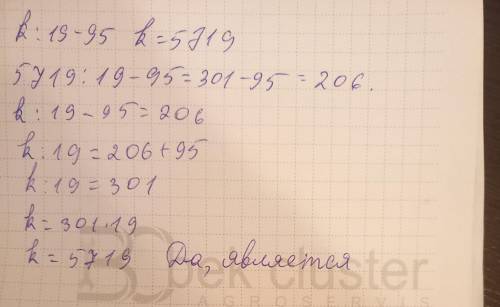 k:19-95 k=5719
5719:19-95=301-95=206.
k:19-95=206
k:19=206+95
k:19=301
k=301·19
k=5719 Да, является
bek cluster
AGROSERV